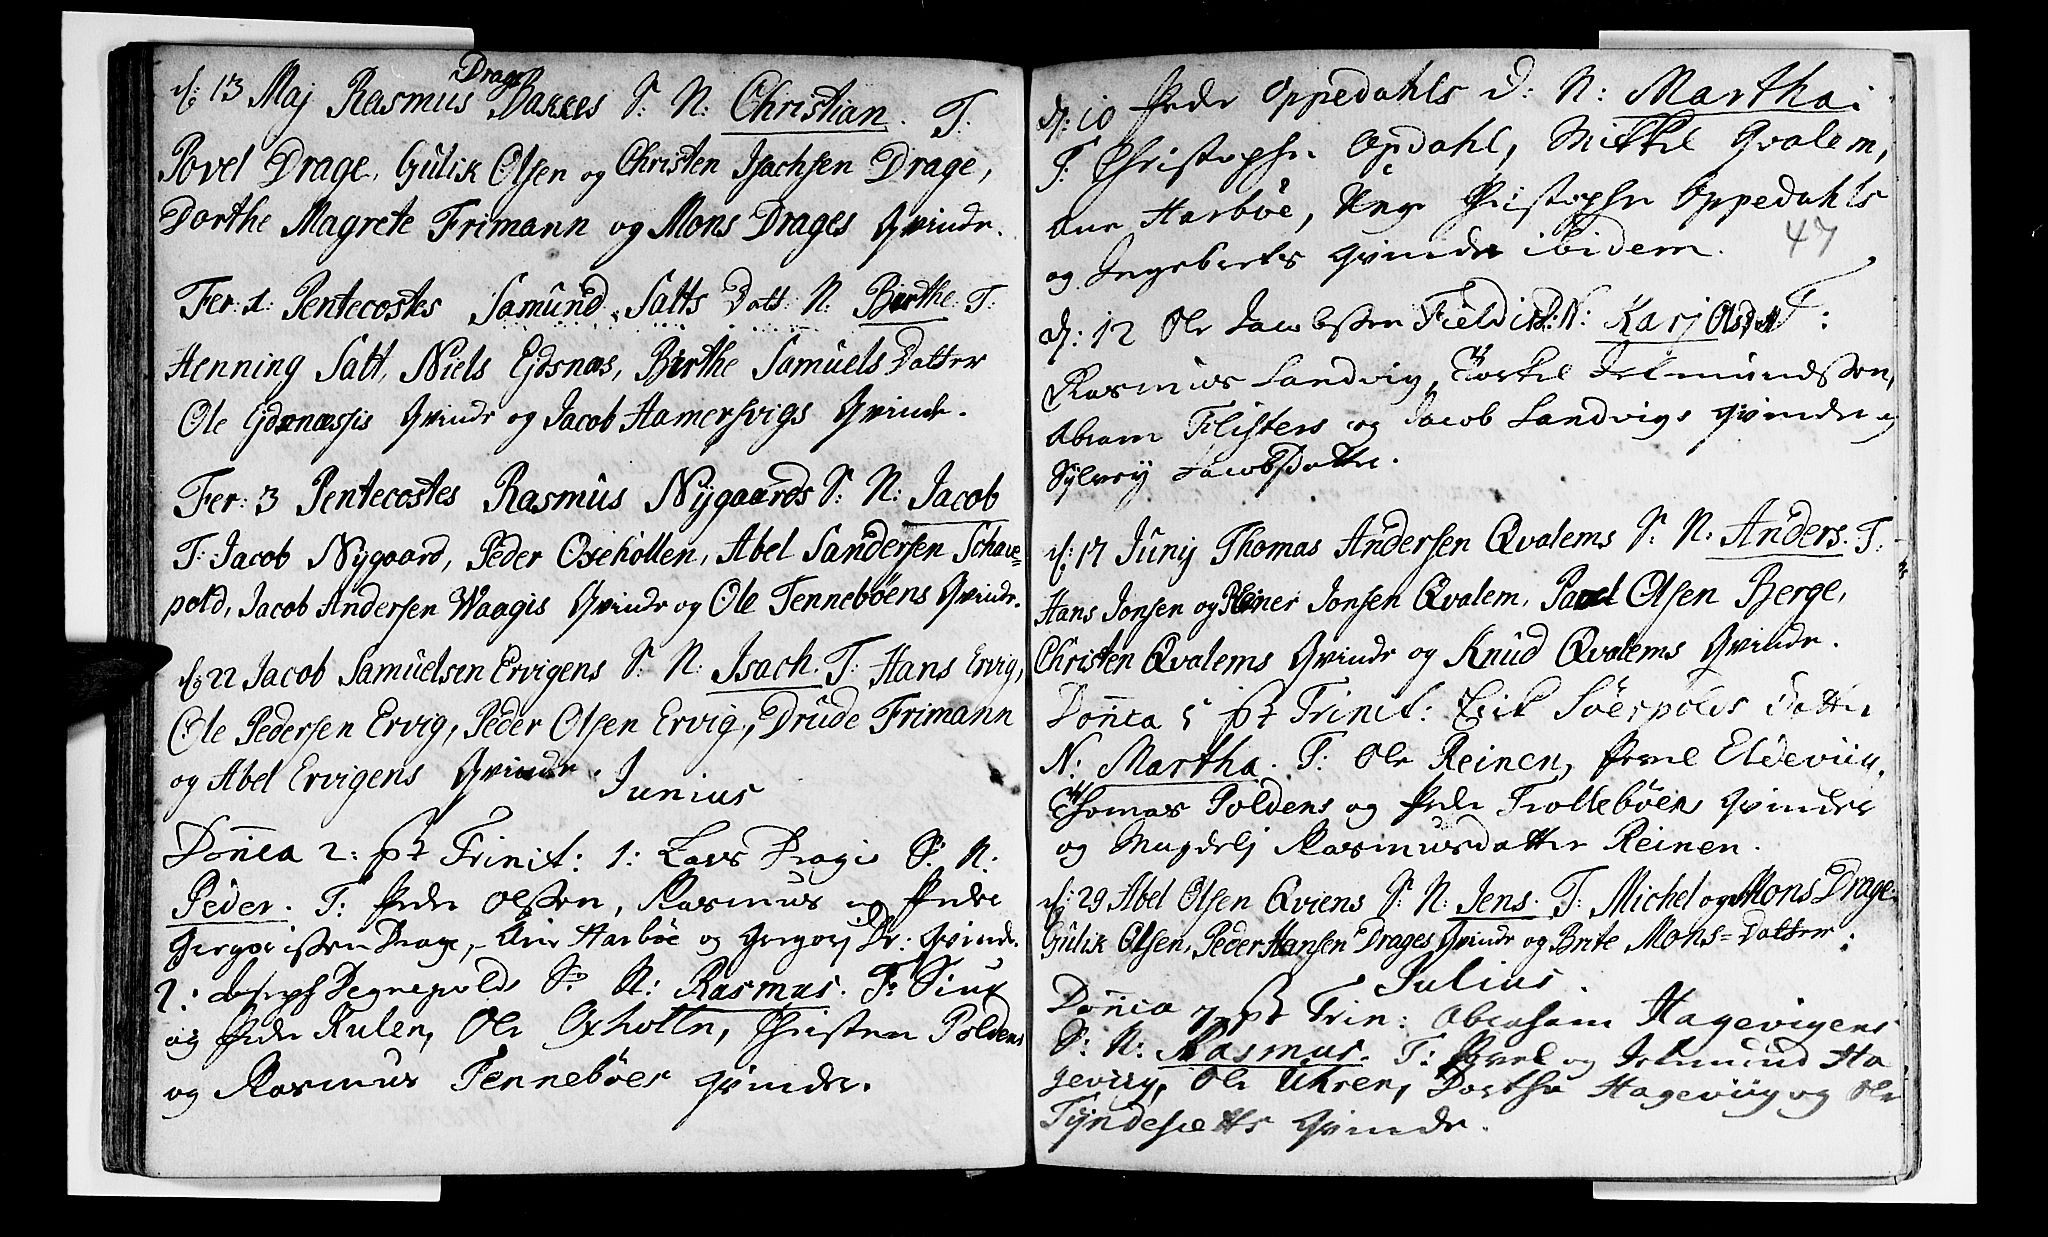 d: 13 Maj Rasmus Drage Bakkes S: N: Christian. T:
Povel Drage, Gülik Olsen og Christen Isachsen Drage,
Dorthe Magrete Frimann og Mons Drages Qvinde.
Fer: 1: Pentecostes Samund Salts Datt: N: Birthe. T:
Henning Salt, Niels Ejdsnæs, Birthe Samuels Datter
Ole Ejdsnæssis Qvinde og Jacob Hamersvigs Qvinde.
Fer: 3 Pentecostes Rasmus Nÿgaards S: N: Jacob
T: Jacob Nygaard, Peder Oxehollen, Abel Sandersen Schare=
pold, Jacob Andersen Waagis Qvinde og Ole Tennebøens Qvinde.
d: 22 Jacob Samuelsen Ervigens S: N: Isach. T: Hans Ervig,
Ole Pedersen Ervig, Peder Olsen Ervig, Drude Frimann
og Abel Ervigens Qvinde.
Junius
Dom̄ca 2: pt Trinit: 1: Lars Dragis S: N:
Peder. T: Peder Olssen, Rasmus og Peder
Gregorissen Drage, Harboe og Gregorj Dr: Qvinde.
2: Joseph Degnepolds S: N: Rasmus. T:
og Peder Rulen, Ole Oxholln, Christen Poldens
og Rasmus Tennebøes Qvinder.
d: 10 Peder Oppedahls D: N: Martha:
T: Christopher Opdahl, Mikkel Qvalem,
Harboe, Christopher Oppedahls
og Ingebrets Qvinde ibidem. 47
d: 12 Ole Jacobssen Field D: N: Karj Olsdat T:
Rasmus Sandvig, Torkel Jetmundssen,
Abram Flisters og Jacob Sandvigs Qvinder og
Sylvey Jacobsdatter.
d: 17 Junij Thomas Andersen Qvalems S: N: Anders. T:
Hans Jonsen og Reiner Jonsen Qvalem, Pavel Olsen Berge,
Christen Qvalems Qvinde og Knud Qvalems Qvinde.
Dom̄ca 5 pt Trinit: Erik Söerpolds Datter
N: Martha. T: Ole Reinen, Povel Eldeviig,
Thomas Poldens og Peder Trollebøens Qvinder
og Magdelj Rasmusdatter Reinen.
d: 29 Abel Olsen Qviens S: N: Jens. T: Michel og Mons Drage.
Gülik Olsen, Peder Hansen Drages Qvinde og Brite Mons=Datter.
Julius.
Dom̄ca 7 pt Trin: Abraham Hagevigens
S: N: Rasmus. T: Povel og Jetmund Ha
geviig, Ole Uhren, Dorthe Hageviig og Ole
Tÿndesætts Qvinde.